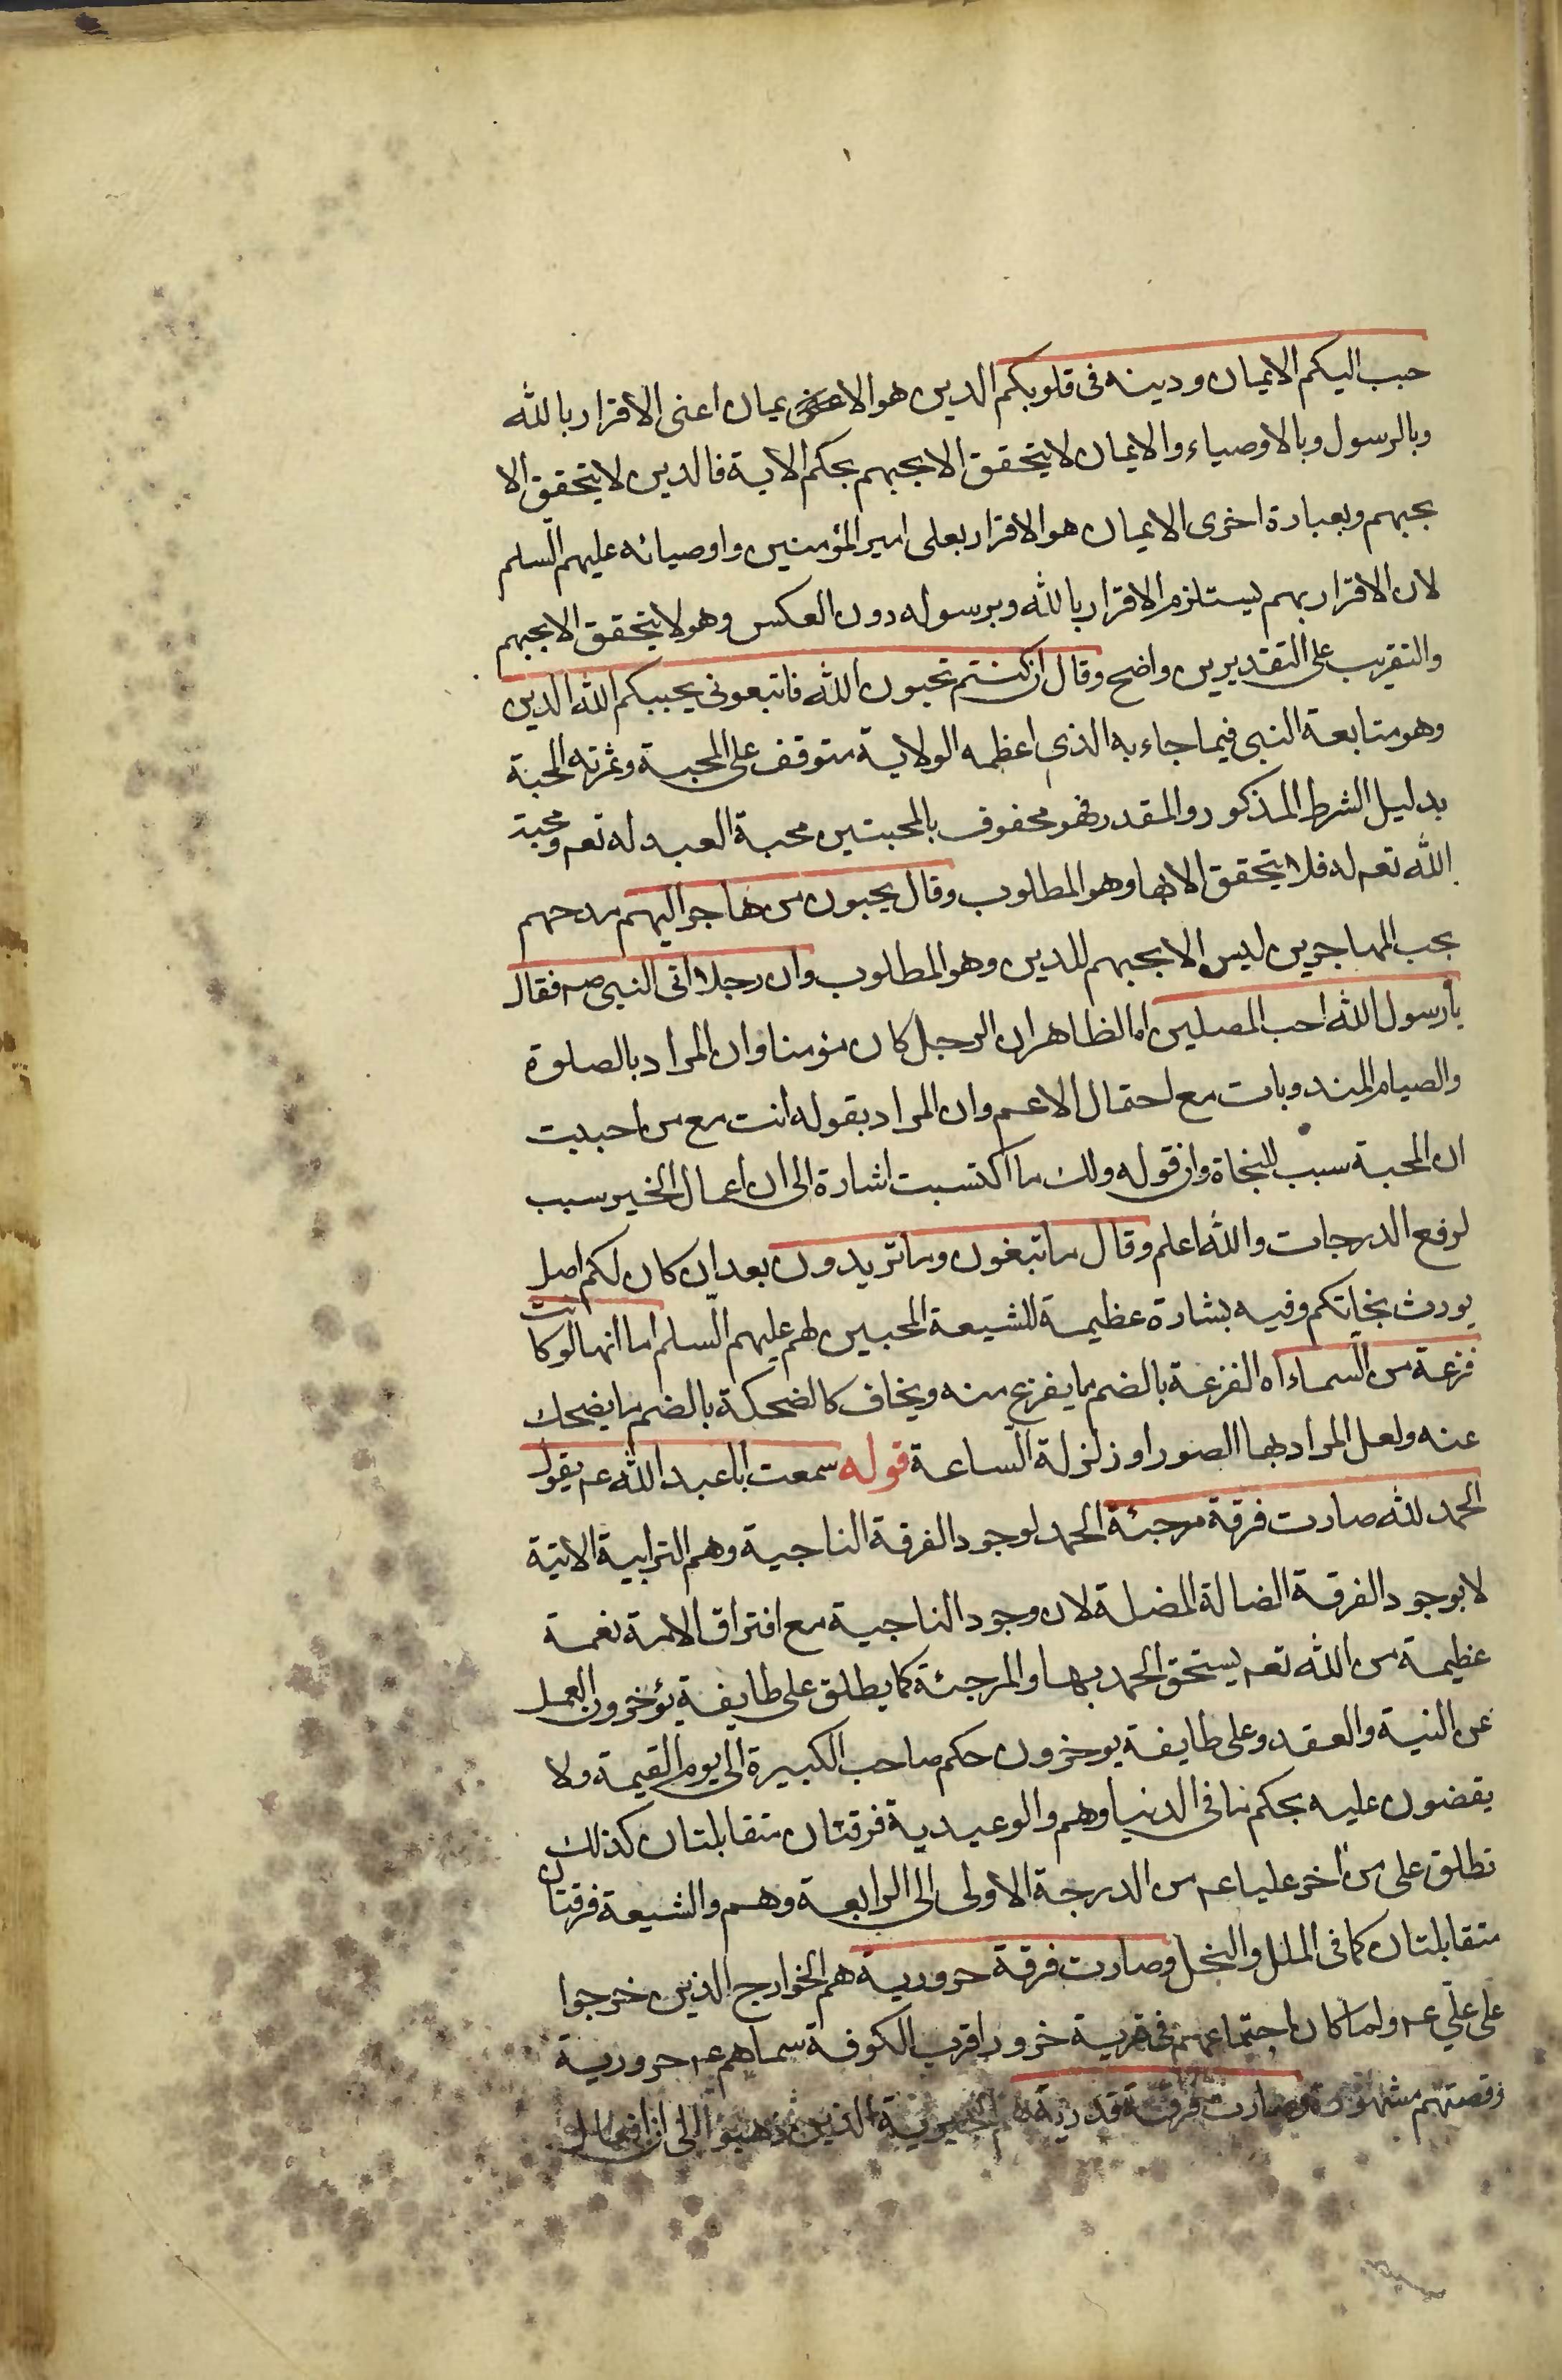 حبب اليكم الايمان ودينه فى قلوبكم الدين هو الايمان اعنى الاقرار بالله
وبالرسول وبالاوصياء والايمان لا يتحقق الا بحبهم بحكم الاية فالدين لا يتحقق الا
بحبهم وبعبارة اخرى الايمان هو الاقرار بعلى امير المؤمنين واوصيائه عليهم السلم
لان الاقرار بهم يستلزم الاقرار بالله وبرسوله دون العكس وهو لا يتحقق الا بحبهم
والتقريب على التقديرين واضح وقال ان كنتم تحبون الله فاتبعونى يحببكم الله الدين
وهو متابعة النبى فيما جاء به الذى اعظمه الولاية متوقف على المحبة وثمرته المحبة
بدليل الشرط المذكور والمقدر فهو محفوف بالمحبتين محبة العبد له تعه ومحبة
الله تعه له فلا يتحقق الا بها وهو المطلوب وقال يحبون من هاجر اليهم مدحهم
بحب المهاجرين ليس الا بحبهم للدين وهو المطلوب وان رجلا اتى النبى صه فقال
يا رسول الله احب المصلين اه الظاهر ان الرجل كان مؤمنا وان المراد بالصلوة
والصيام المندوبات مع احتمال الاعم وان المراد بقوله انت مع من احببت
ان المحبة سبب للنجاة وان قوله ولك ما اكتسبت اشارة الى ان اعمال الخير سبب
لرفع الدرجات والله اعلم وقال ما تبغون وما تريدون بعد ان كان لكم اصل
يورث نجاتكم وفيه بشارة عظيمة للشيعة المحبين لهم عليهم السلم اما انها لو كانت
فزعة من السماء اه الفزعة بالضم ما يفزع منه ويخاف كالضحكة بالضم ما يضحك
عنه ولعل المراد بها الصور او زلزلة الساعة قوله سمعت ابا عبد الله عه يقول
الحمد لله صارت فرقة مرجئة الحمد لوجود الفرقة الناجية وهم الترابية الاتية
لا بوجود الفرقة الضالة المضلة لان وجود الناجية مع افتراق الامة نعمة
عظيمة من الله تعه يستحق الحمد بها والمرجئة كما يطلق على طايفة يؤخرون العمل
عن النية والعقد وعلى طايفة يوخرون حكم صاحب الكبيرة الى يوم القيمة ولا
يقضون عليه بحكم ما فى الدنيا وهم والوعيدية فرقتان متقابلتان كذلك
تطلق على من اخر عليا عه من الدرجة الاولى الى الرابعة وهم والشيعة فرقتان
متقابلتان كما فى الملل والنحل وصارت فرقة حرورية هم الخوارج الذين خرجوا
على على عه ولما كان اجتماعهم فى قرية خرورا قرب الكوفة سماهم عه حرورية
وقصتهم مشهورة وصارت فرقة قدرية هم الجبرية الذين ذهبوا الى ان افعال